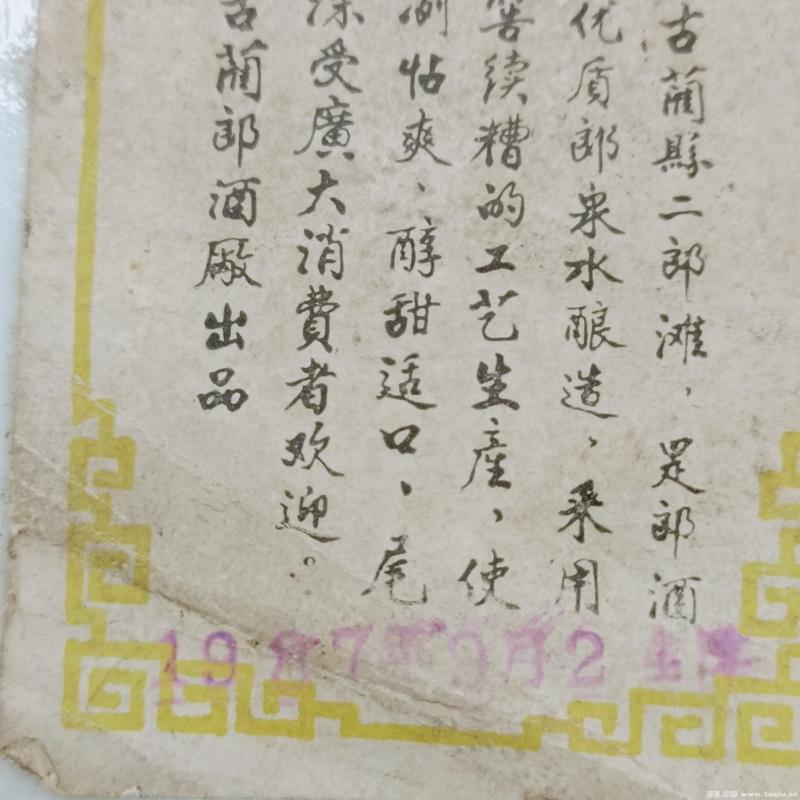 古蔺縣二郎滩，是郎酒
优质郎泉水酿造，采用
窖续糟的工艺生産，使
冽帖爽、醇甜适口、尾
深受廣大消費者欢迎。
古蔺郎酒廠出品
1987年9月24
www.taojiu.cn